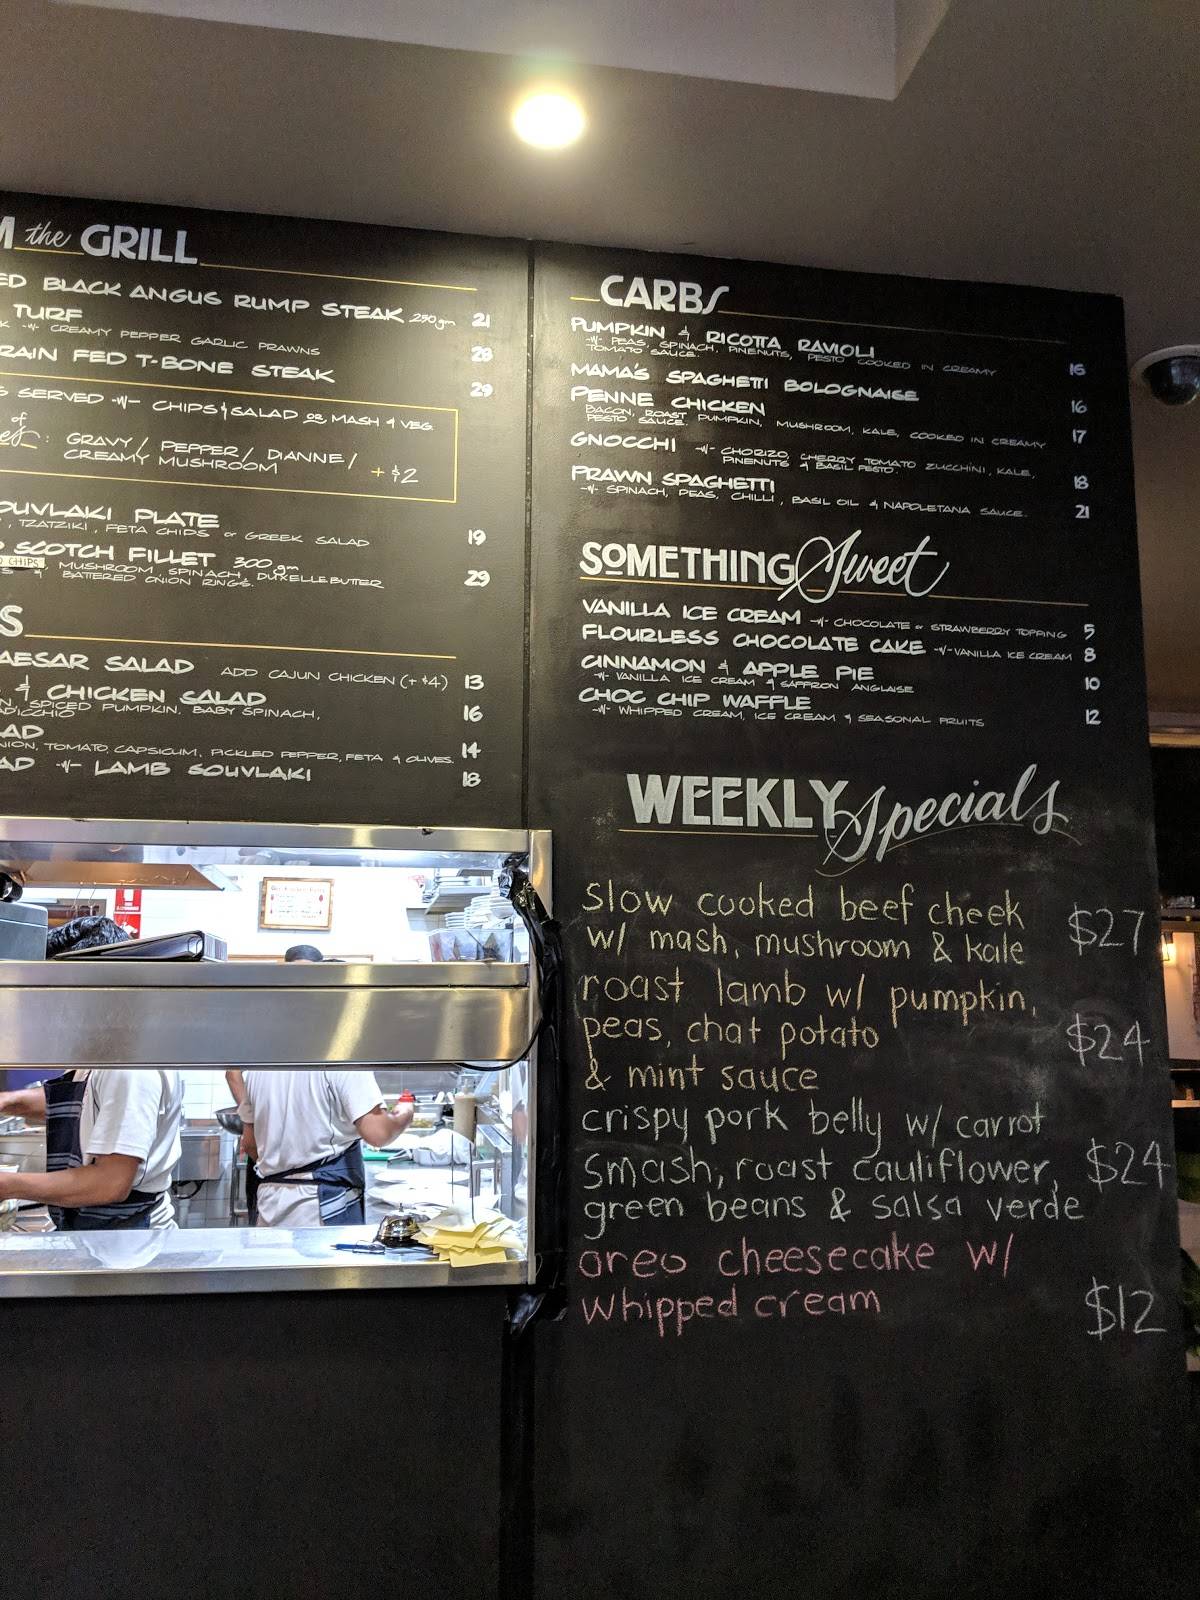 the GRILL
BLACK ANGUS RUMP STEAK 250gm 21
TURF
-W- CREAMY PEPPER GARLIC PRAWNS 28
FED T-BONE STEAK 29
SERVED -W- CHIPS & SALAD OR MASH & VEG
of
: GRAVY / PEPPER / DIANNE /
CREAMY MUSHROOM + $2
PLATE
, TZATZIKI, FETA CHIPS or GREEK SALAD 19
SCOTCH FILLET 300gm
CHIPS MUSHROOM, SPINACH, DUXELLE BUTTER
& BATTERED ONION RINGS. 29
SALAD ADD CAJUN CHICKEN (+ $4) 13
& CHICKEN SALAD
SPICED PUMPKIN, BABY SPINACH, 16
TOMATO, CAPSICUM, PICKLED PEPPER, FETA & OLIVES. 14
-W- LAMB SOUVLAKI 18
CARBS
PUMPKIN & RICOTTA RAVIOLI
-W- PEAS, SPINACH, PINENUTS, PESTO COOKED IN CREAMY
TOMATO SAUCE. 16
MAMA'S SPAGHETTI BOLOGNAISE 16
PENNE CHICKEN
BACON, ROAST PUMPKIN, MUSHROOM, KALE, COOKED IN CREAMY
PESTO SAUCE. 17
GNOCCHI -W- CHORIZO, CHERRY TOMATO ZUCCHINI, KALE,
PINENUTS & BASIL PESTO. 18
PRAWN SPAGHETTI
-W- SPINACH, PEAS, CHILLI, BASIL OIL & NAPOLETANA SAUCE. 21
SOMETHING Sweet
VANILLA ICE CREAM -W- CHOCOLATE or STRAWBERRY TOPPING 5
FLOURLESS CHOCOLATE CAKE -W- VANILLA ICE CREAM 8
CINNAMON & APPLE PIE
-W- VANILLA ICE CREAM & SAFFRON ANGLAISE 10
CHOC CHIP WAFFLE
-W- WHIPPED CREAM, ICE CREAM & SEASONAL FRUITS 12
WEEKLY Specials
slow cooked beef cheek
w/ mash, mushroom & kale $27
roast lamb w/ pumpkin,
peas, chat potato $24
& mint sauce
crispy pork belly w/ carrot
smash, roast cauliflower, $24
green beans & salsa verde
oreo cheesecake w/
whipped cream $12